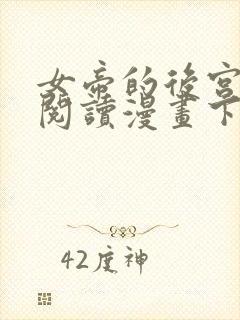 女帝的後宮
閱讀漫畫下
42度神